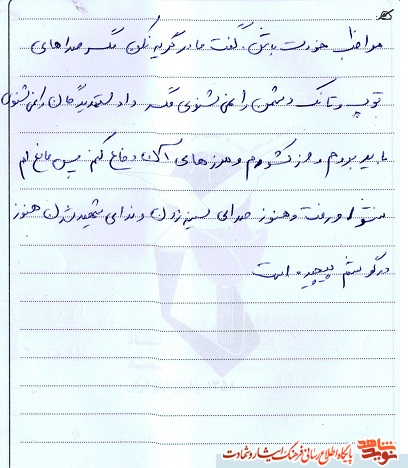 مواظب خودت باش، گفت مادر گریه نکن مگر صداهای
توپ و تانک دشمن را نمی شنوی مگر داد را نمی شنوی
باید بروم و از کشورم و مرزهای آن دفاع کنم پس مانع ام
نشو او رفت و هنوز صدای سینه زدن و ندای شهید شدن هنوز
در گوشم پیچیده است
نوید شاهد
پایگاه اطلاع رسانی فرهنگ ایثار و شهادت